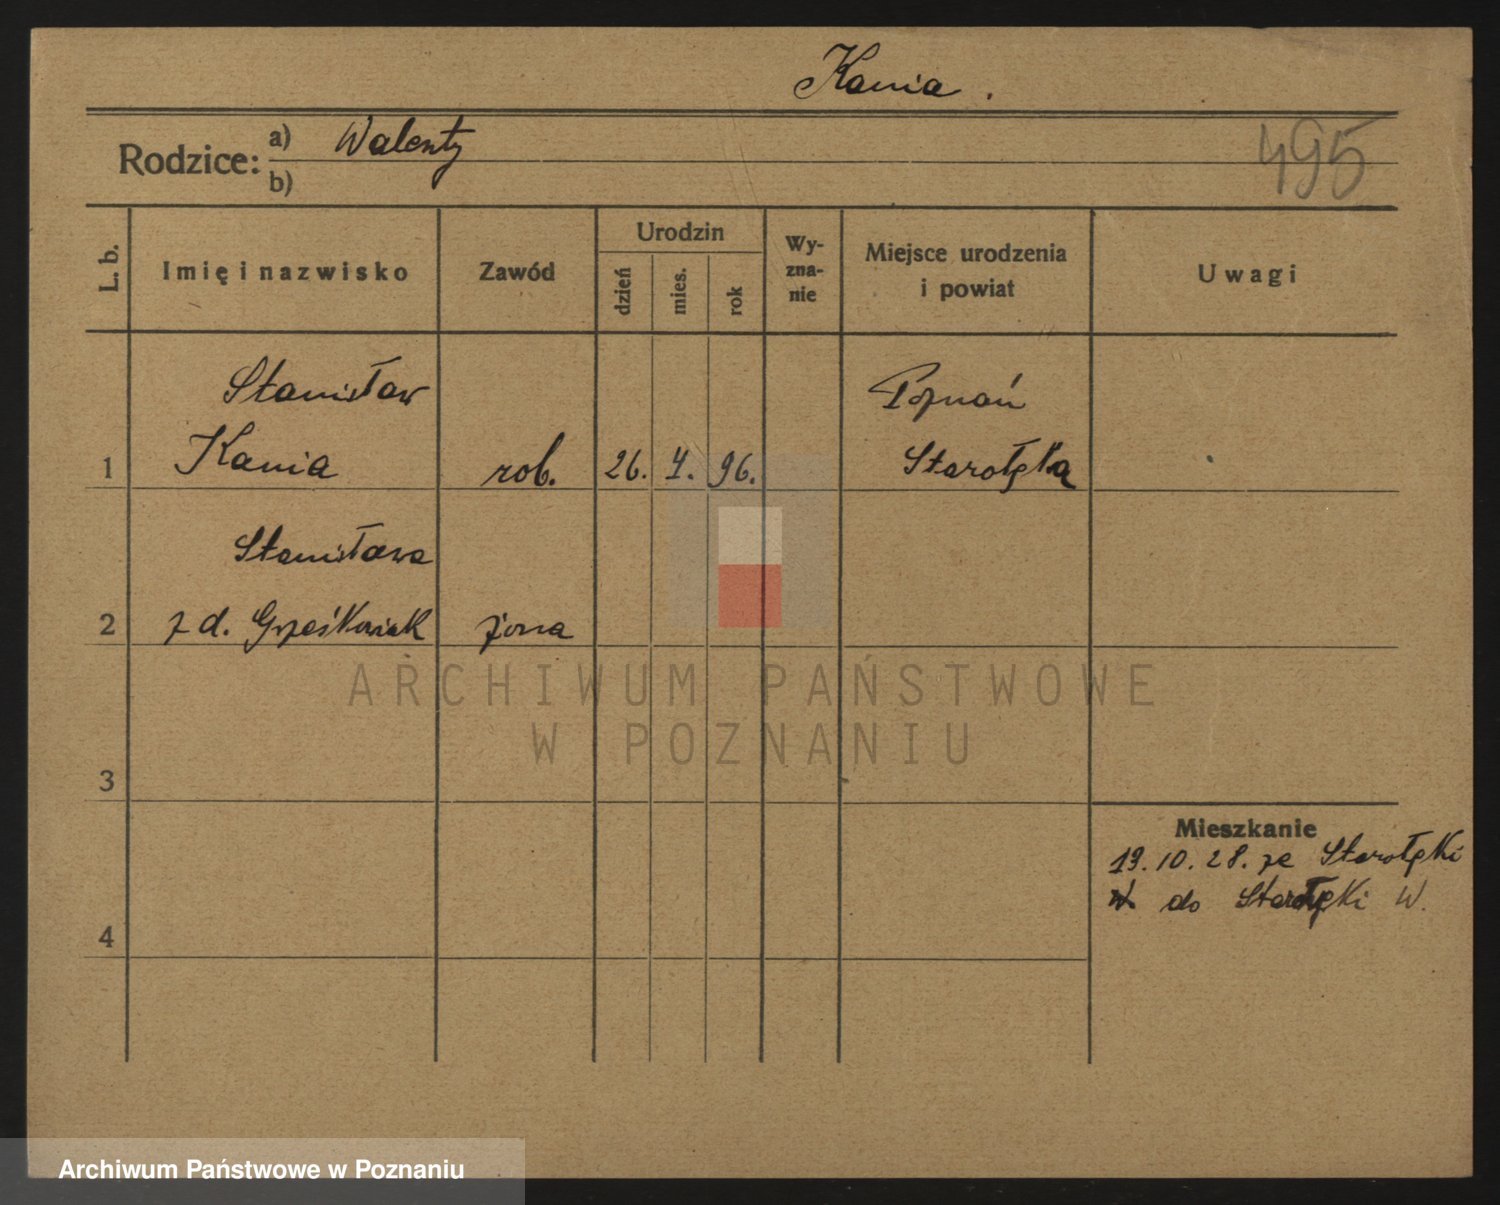 Kania.
Rodzice: a) Walenty
b)
495
L. b.
Imię i nazwisko
Zawód
Urodzin
dzień
mies.
rok
Wy-
zna-
nie
Miejsce urodzenia
i powiat
Uwagi
Stanisław
Poznań
1 Kania rob. 26. 4. 96. Starołęka
Stanisława
2 z d. Grześkowiak żona
3
Mieszkanie
19.10.28. ze Starołęki
do Starołęki W.
4
ARCHIWUM PAŃSTWOWE
W POZNANIU
Archiwum Państwowe w Poznaniu